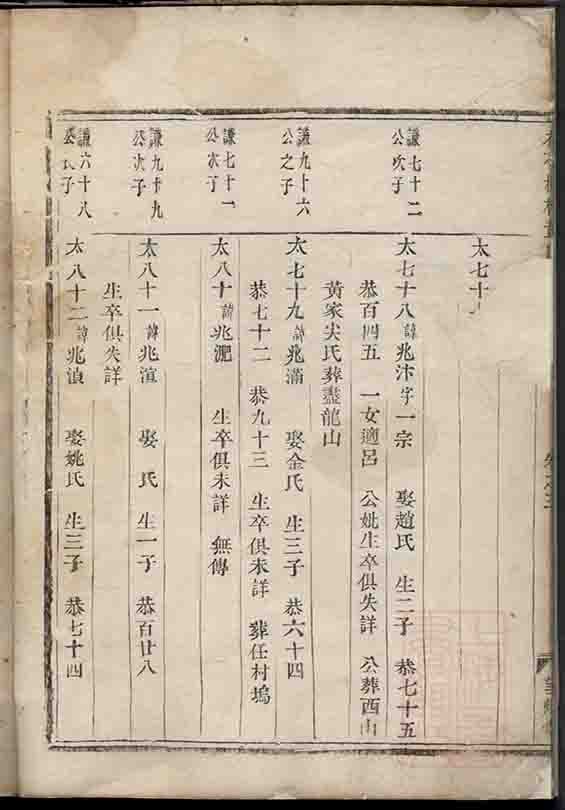 太七十
謙七十二
公次子
太七十八諱兆汴字一宗 娶趙氏 生二子 恭七十五
恭百四五 一女適呂 公妣生卒俱失詳 公葬西山
黃家尖氏葬盡龍山
謙九十六
公之子
太七十九諱兆滿 娶金氏 生三子 恭六十四
恭七十二 恭九十三 生卒俱未詳 葬任村塢
謙七十一
公次子
太八十諱兆淝 生卒俱未詳 無傳
謙九十九
公次子
太八十一諱兆渲 娶 氏 生一子 恭百廿八
生卒俱失詳
謙六十八
公次子
太八十二諱兆滇 娶姚氏 生三子 恭七十四